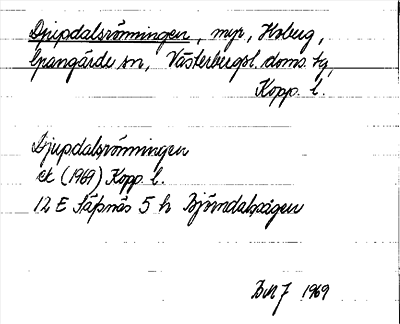 Djupdalsrönningen, myr, Hoberg,
Grangärde sn, Västerbergsl. doms. tg,
Kopp. l.
Djupdalsrönningen
ek (1969) Kopp. l.
12 E Säfsnäs 5 h Björndalsvägen
1969